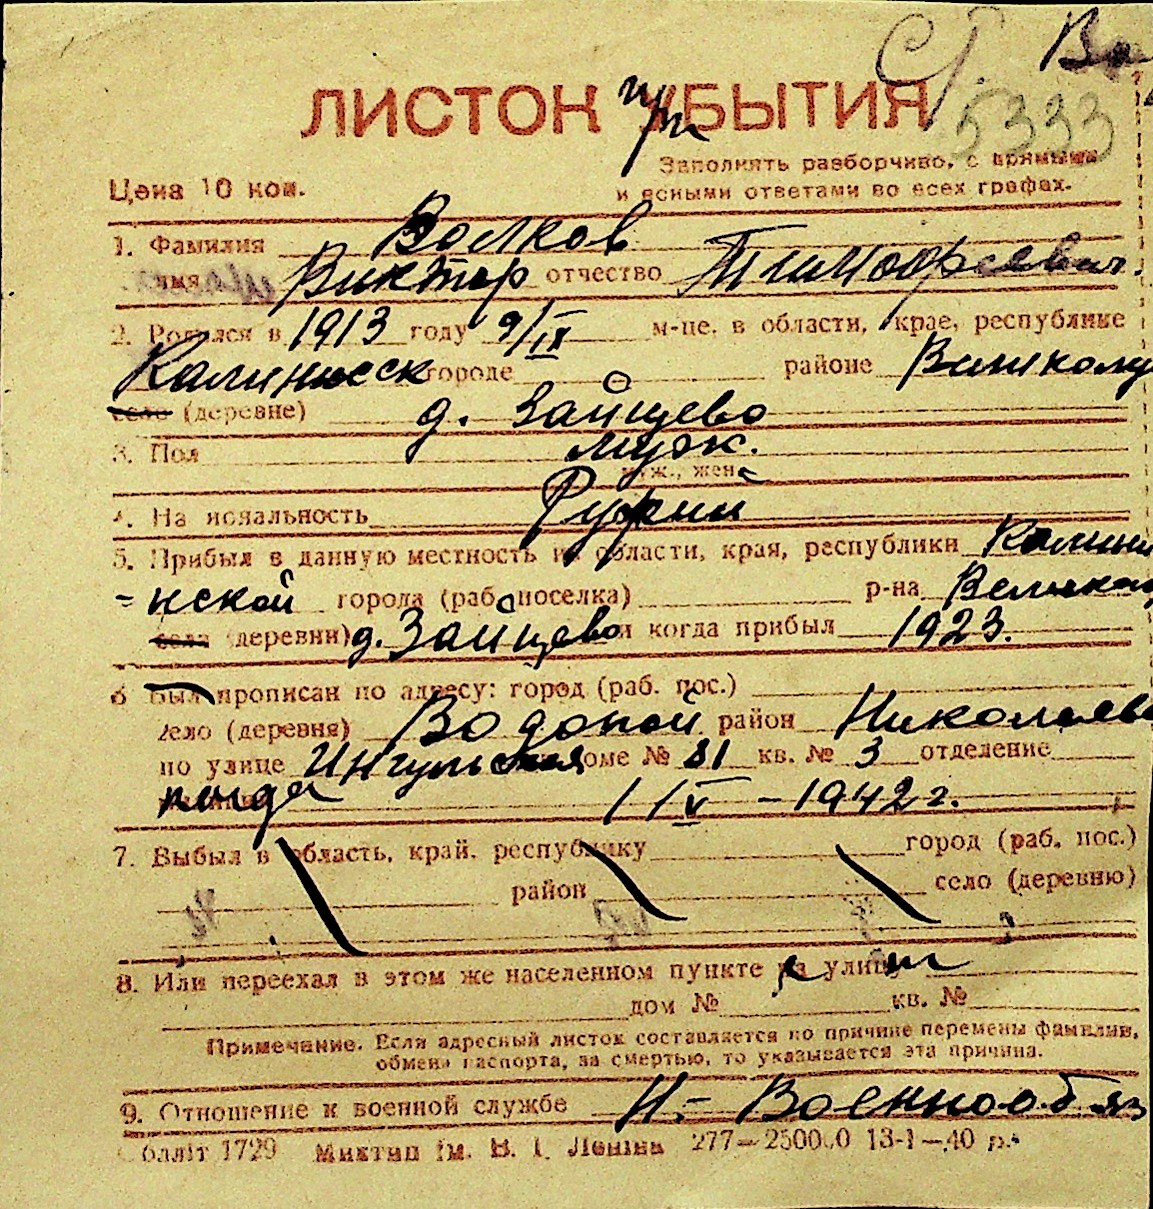 Ср. Вл
5333
ЛИСТОК УБЫТИЯ
при
Заполнять разборчиво, с прямыми
и ясными ответами во всех графах.
Цена 10 коп.
1. Фамилия Волков
имя Виктор отчество Тимофеевич.
2. Родился в 1913 году 9/IX м-це. в области, крае, республике
Калининск городе ⊖ районе Великолу
село (деревне) д. Зайцево
3. Пол муж.
муж., жен.
4. Национальность Русский
5. Прибыл в данную местность из области, края, республики Калини
= нской города (раб. поселка) р-на Великол
села (деревни) д. Зайцево и когда прибыл 1923.
6 Был прописан по адресу: город (раб. пос.)
село (деревня) Водопой район Николаевс
по улице Ингульская доме № 81 кв. № 3 отделение
когда 1/V – 1942 г.
7. Выбыл в область, край, республику город (раб. пос.)
район село (деревню)
8. Или переехал в этом же населенном пункте на улицу
дом № кв. №
Примечание. Если адресный листок составляется по причине перемены фамилии,
обмена паспорта, за смертью, то указывается эта причина.
9. Отношение к военной службе Н.- Военнообяз
Обліт 1729 Миктип ім. В. І. Леніна 277—25000 13-1—40 р.